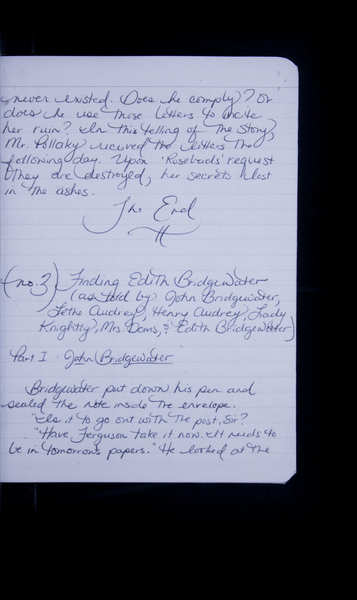 never existed. Does he comply? Or
does he use those letters to incite
her ruin? In this telling of the story,
Mr. Pollaky received the letters the
following day. Upon 'Rosebuds' request
they are destroyed, her secrets lost
in the ashes.
The End
(no. 3) Finding Edith Bridgewater
(as told by John Bridgewater,
Lethe Audrey, Henry Audrey, Lady
Knightly, Mrs Dams, & Edith Bridgewater)
Part I John Bridgewater
Bridgewater put down his pen and
sealed the note inside the envelope.
"Is it to go out with the post, Sir?
"Have Ferguson take it now. It needs to
be in tomorrow's papers." He looked at the